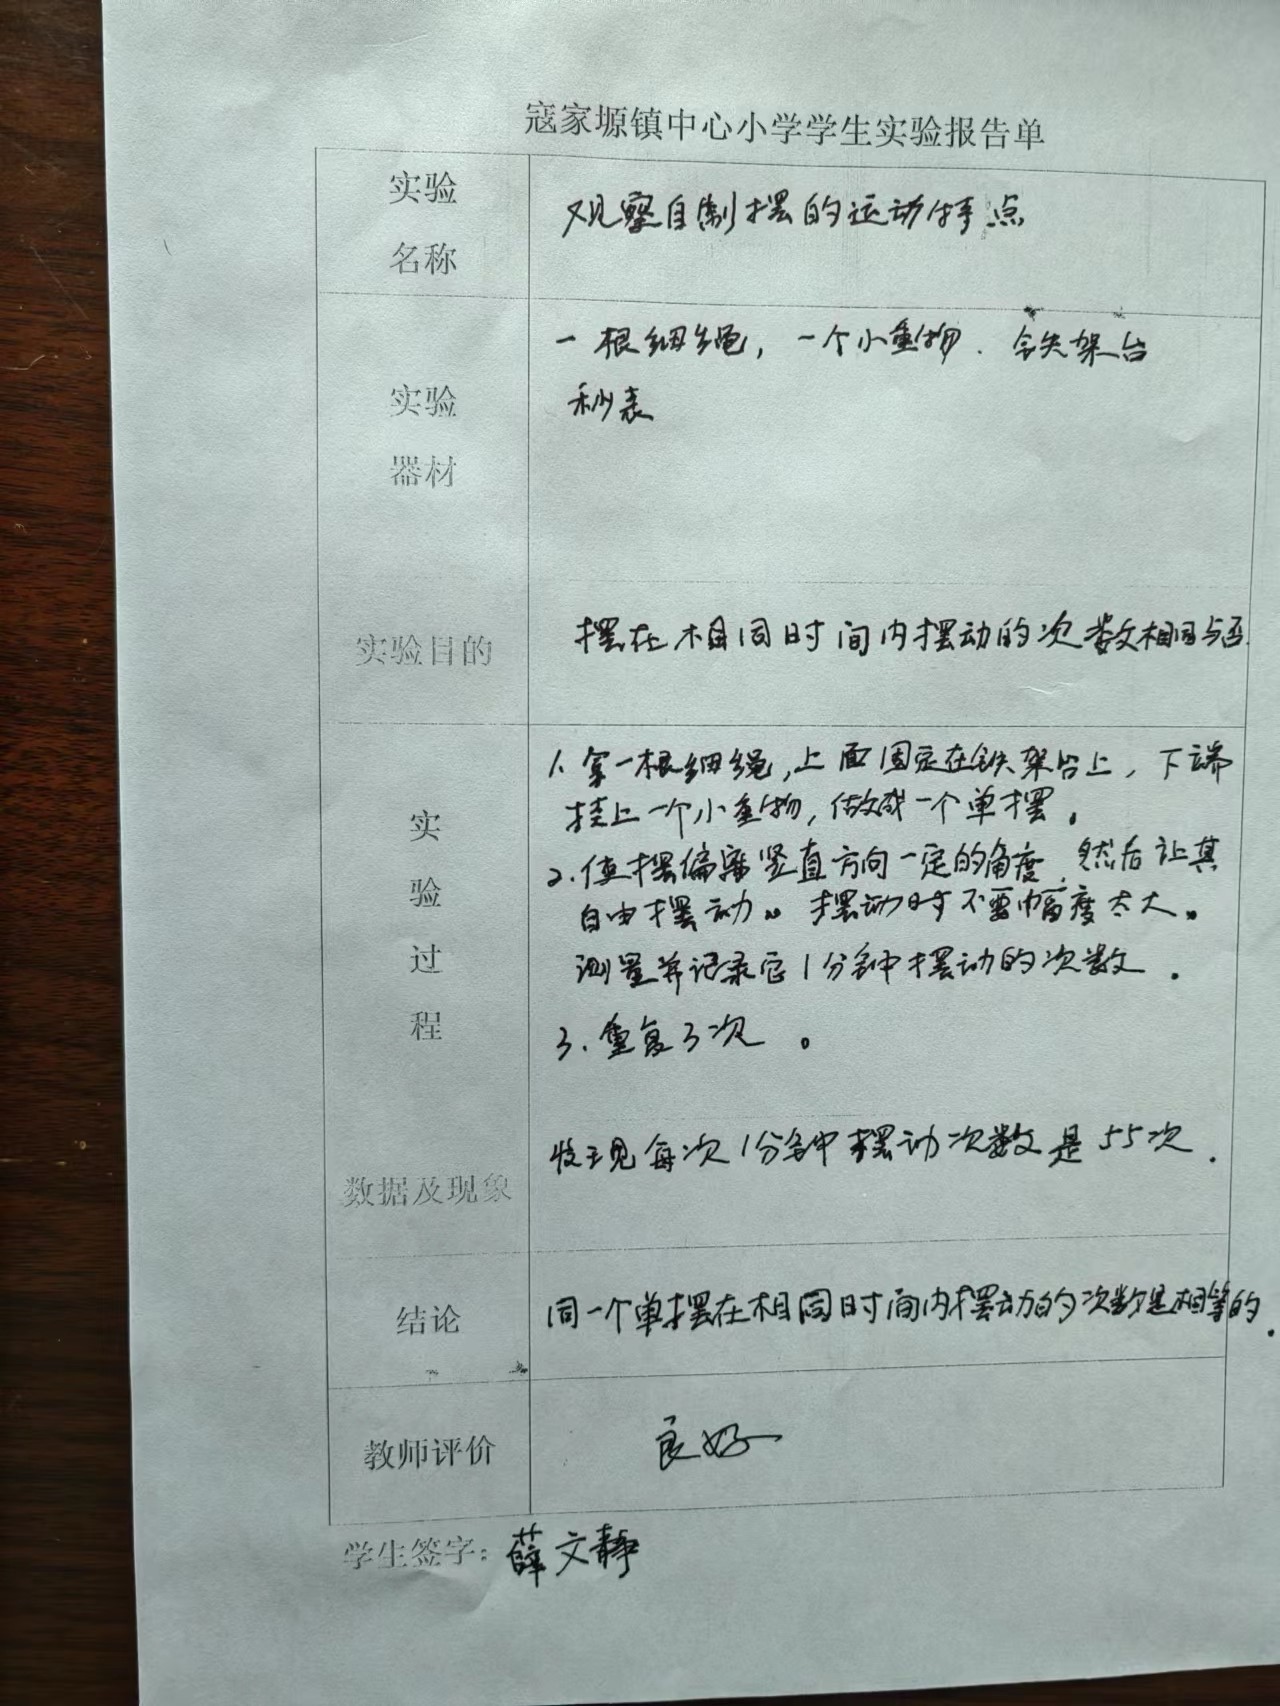 寇家塬镇中心小学学生实验报告单
实验
名称
观察自制摆的运动特点
一根细绳，一个小重物、铁架台
秒表
实验
器材
实验目的
摆在相同时间内摆动的次数相同与否.
实
验
过
程
1、拿一根细绳,上面固定在铁架台上，下端
挂上一个小重物,做成一个单摆。
2、使摆偏离竖直方向一定的角度,然后让其
自由摆动。摆动时不要幅度太大。
测量并记录它1分钟摆动的次数.
3、重复3次。
数据及现象
发现每次1分钟摆动次数是55次.
结论
同一个单摆在相同时间内摆动的次数是相等的.
教师评价
良好
学生签字：薛文静